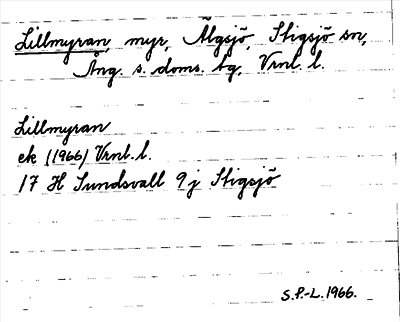 Lillmyran, myr, Älgsjö, Stigsjö sn,
Ång. s. doms. tg, Vrnl. l.
Lillmyran
ek (1966) Vrnl. l.
17 H Sundsvall 9 j Stigsjö
S.P.-L. 1966.